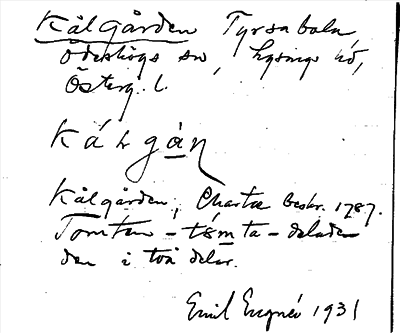 Kålgården Tyrsabola
Ödeshögs sn, Lysings hd,
Österg. l.
Kålgården, Charta beskr. 1787.
Tomten - tómta - delades
den i två delar.
Emil Engnér 1931